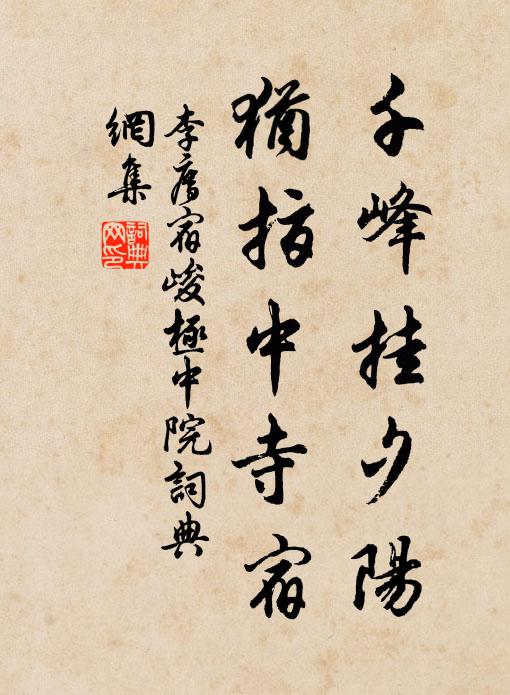 千峰挂夕陽
猶指中寺宿
李廌宿峻極中院詞典
網集
詞典網印